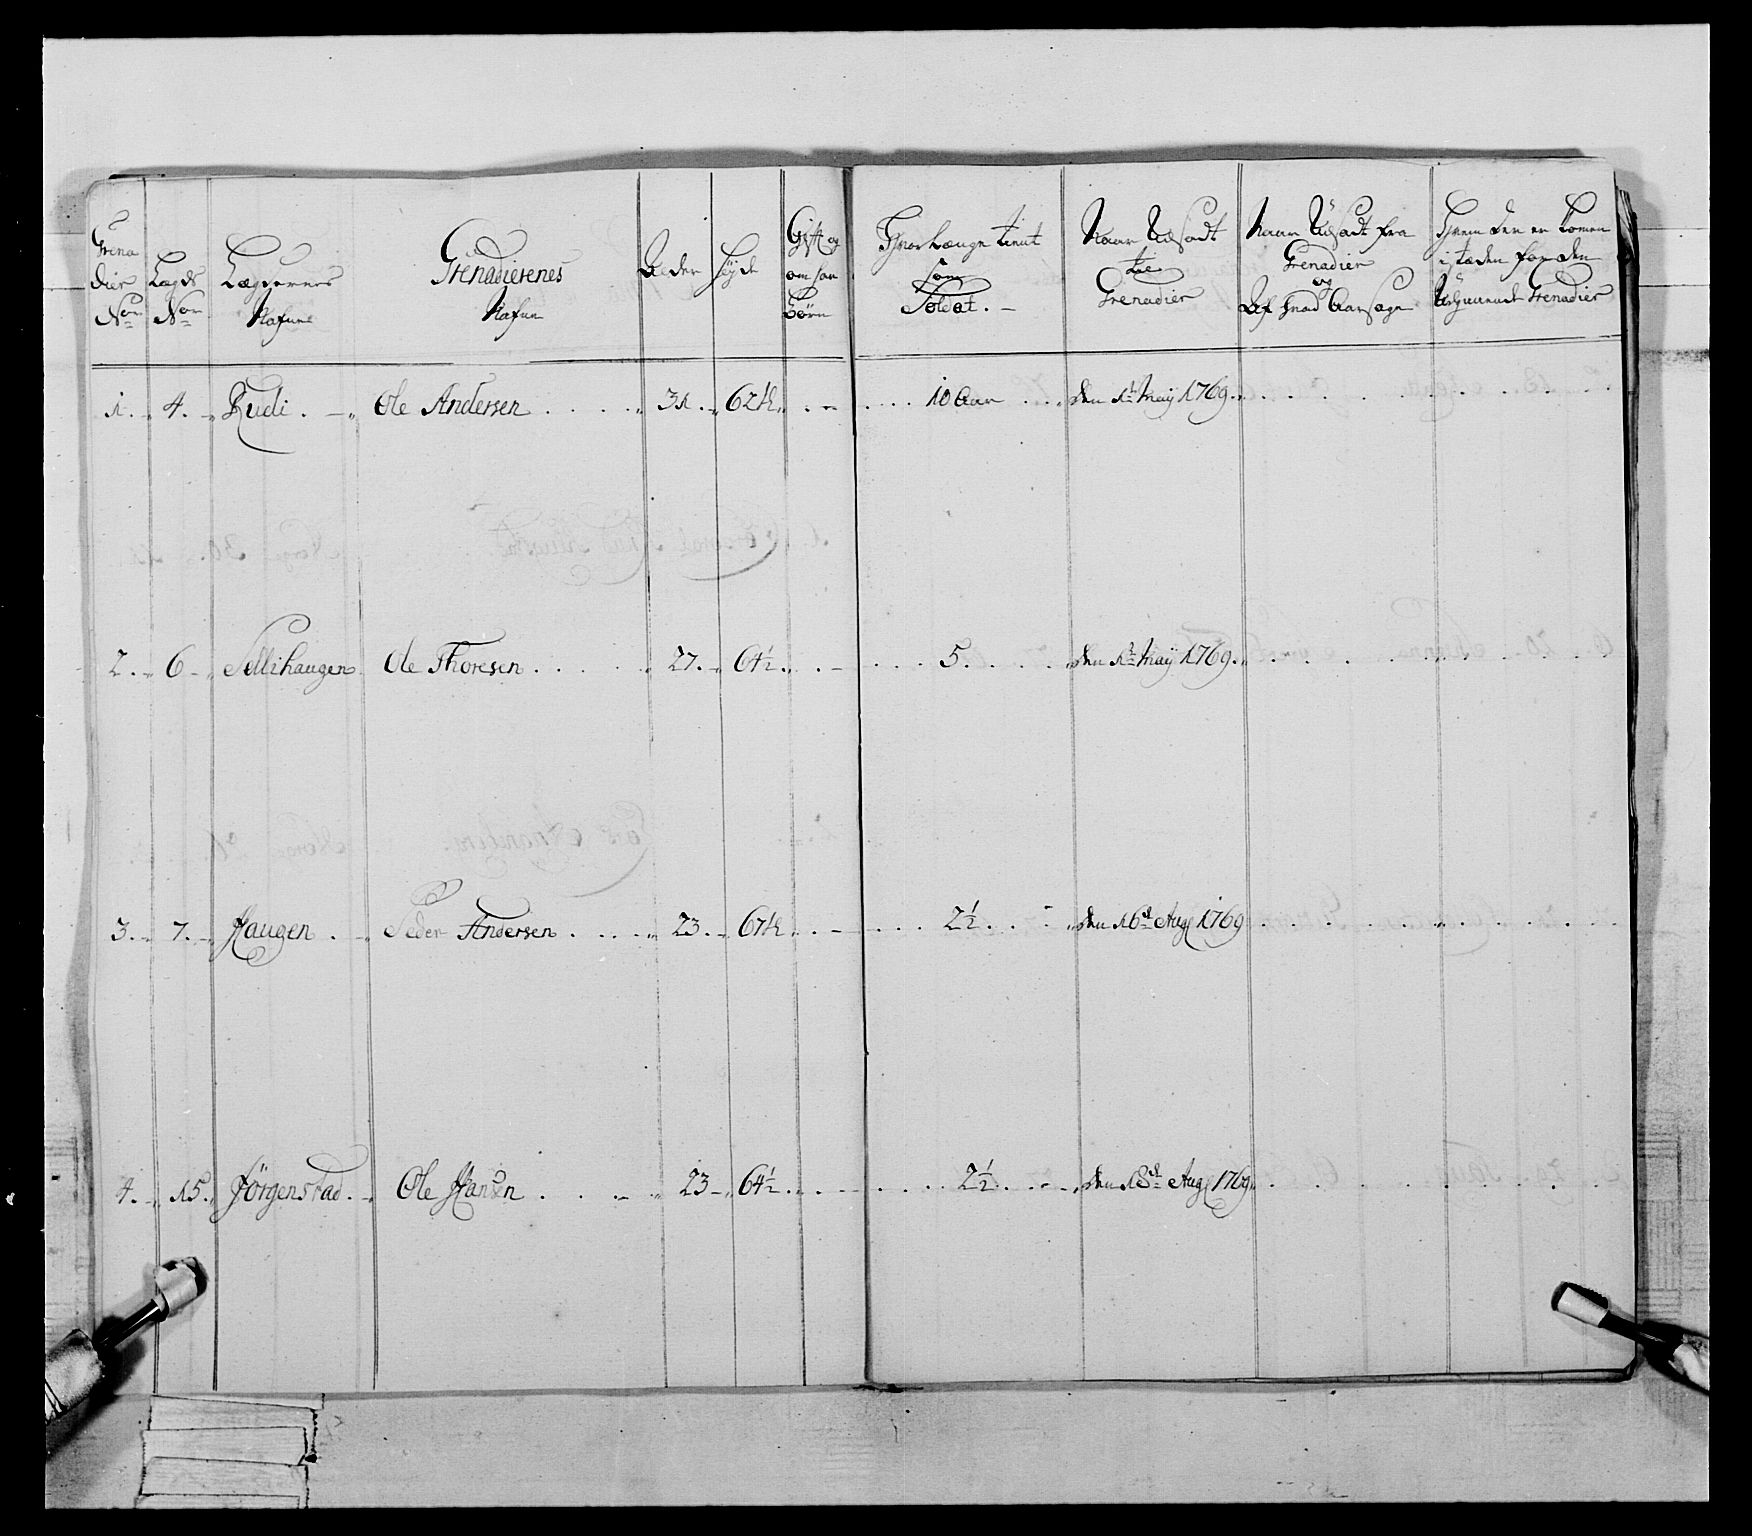 Grena dier No. | Lægds No. | Lægdernes Nafne | Grenadierenes Nafne | Alder | Høyde | Gift og om har Børn | Hvor længe tient som Soldat. | Naar Udsadt til Grenadier | Naar Udsadt fra Grenadier og Af hvad Aarsage | Hvem der er komen i stæden for den Grenadier
1. | 4. | Rudi. | Ole Andersen | 31. | 62 1/2 | 10 Aar | den 1te Maÿ 1769.
2. | 6 | Sellihaugen | Ole Thoresen | 27. | 64 1/2 | 5. | den 1te Maÿ 1769.
3. | 7. | Haugen | Peder Andersen | 23. | 67 1/2 | 2 1/2 | den 16de Aug 1769
4. | 15. | Jörgenstad. | Ole Hansen | 23 | 64 1/2 | 2 1/2 | den 18de Aug 1769.